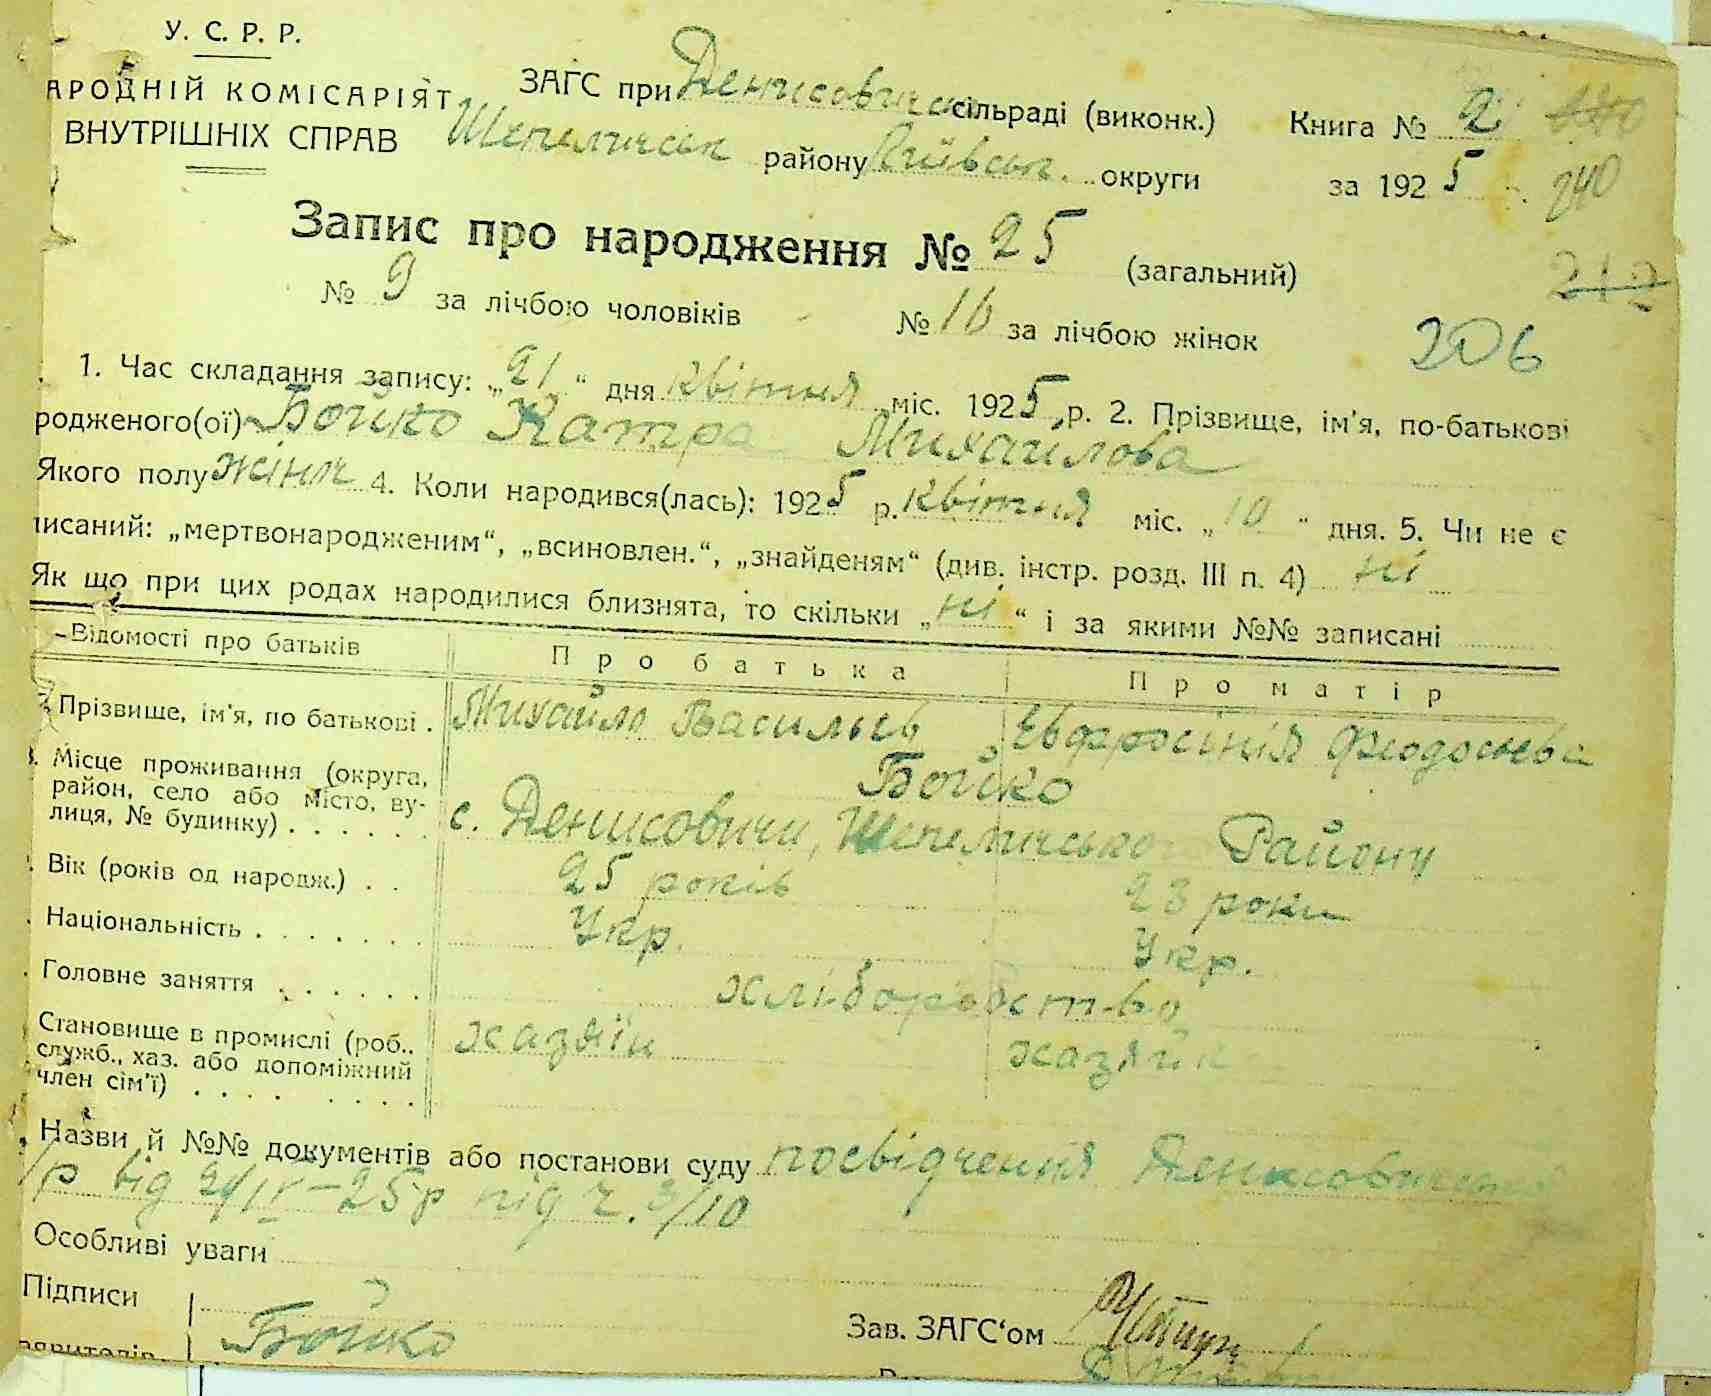 У. С. Р. Р.
АРОДНІЙ КОМІСАРІЯТ
ВНУТРІШНІХ СПРАВ
ЗАГС при Денисовицьк сільраді (виконк.)
Шепелицьк району Київськ. округи
Книга № 2
за 1925
240
Запис про народження № 25 (загальний)
212
№ 9 за лічбою чоловіків № 16 за лічбою жінок
206
1. Час складання запису: „21“ дня квітня міс. 1925 р. 2. Прізвище, ім'я, по-батькові
родженого(ої) Бойко Катра Михайлова
Якого полу жіноч 4. Коли народився(лась): 1925 р. квітня міс. „10“ дня. 5. Чи не є
писаний: „мертвонародженим“, „всиновлен.“, „знайденям“ (див. інстр. розд. III п. 4) ні
Як що при цих родах народилися близнята, то скільки „ні“ і за якими №№ записані
Відомості про батьків Про батька Про матір
Прізвище, ім'я, по батькові . Михайло Васильев Евфросінія Феодосиева
Бойко
Місце проживання (округа,
район, село або місто, ву-
лиця, № будинку) . . . . . . с. Денисовичи, Шепелицького Району
Вік (років од народж.) . . 25 років 23 роки
Національність . . . . . . . Укр. Укр.
Головне заняття . . . . . . хліборобство
Становище в промислі (роб.,
служб., хаз. або допоміжний
член сім'ї) . . . . . . . . хазяїн хазяйк
Назви й №№ документів або постанови суду посвідчення Денисовицької
с/р від 21/IV–25р під ч. 3/10
Особливі уваги
Підписи
Бойко
Зав. ЗАГС‘ом